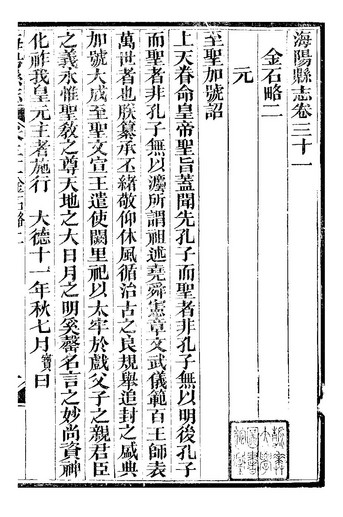 海陽縣志卷三十一
金石略二
元
至聖加號詔
上天眷命皇帝聖旨蓋聞先孔子而聖者非孔子無以明後孔子
而聖者非孔子無以灋所謂祖述堯舜憲章文武儀範百王師表
萬世者也朕纂承丕緒敬仰休風循治古之良規舉追封之盛典
加號大成至聖文宣王遣使闕里祀以太牢於戲父子之親君臣
之義永惟聖敎之尊天地之大日月之明奚罄名言之妙尚資神
化祚我皇元主者施行　大德十一年秋七月　日